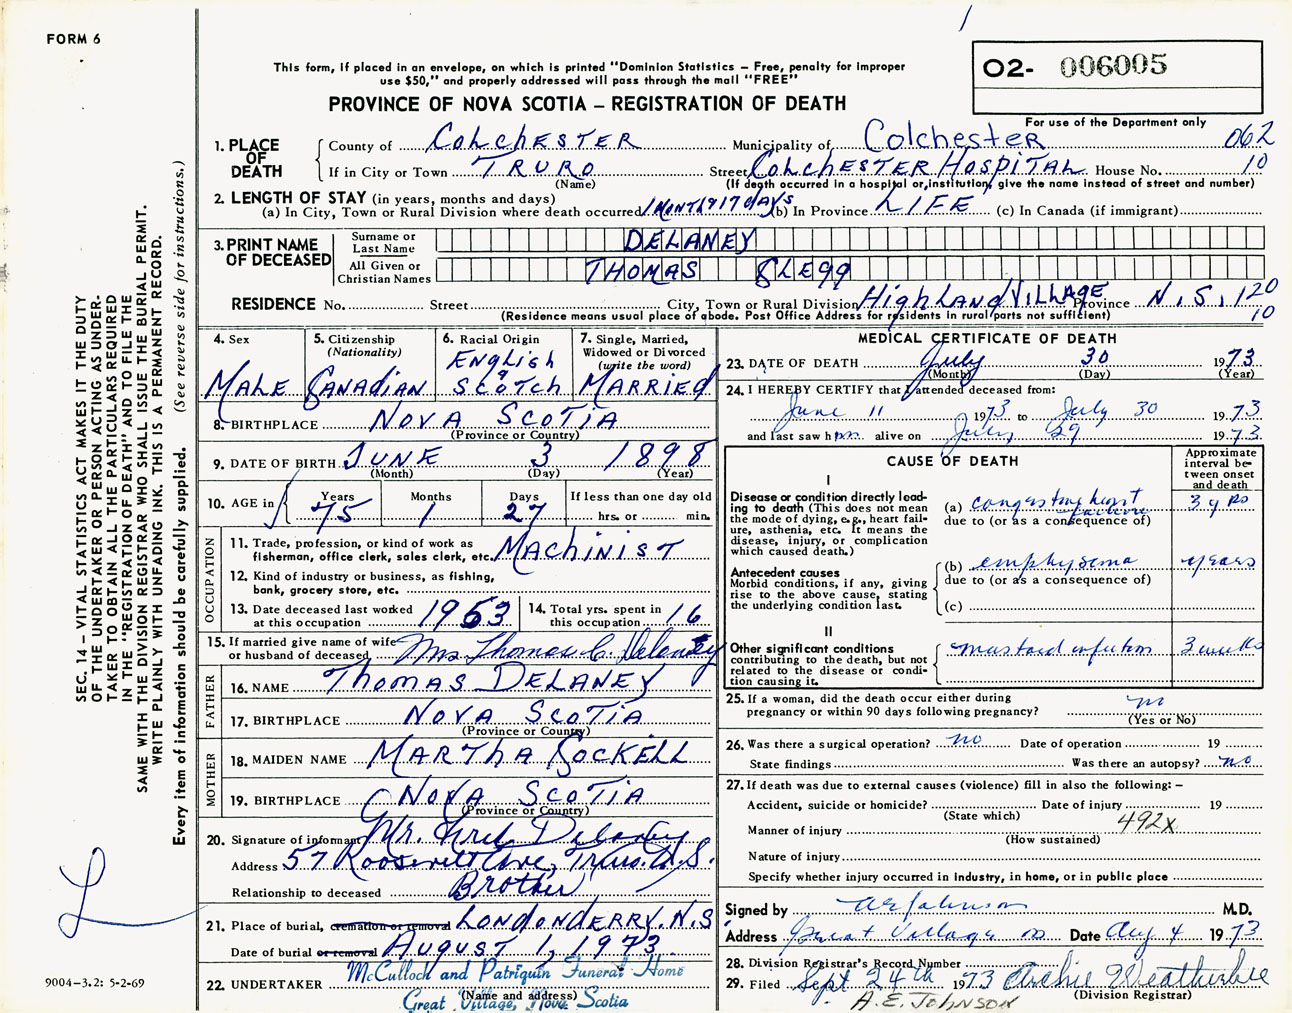 FORM 6
This form, if placed in an envelope, on which is printed "Dominion Statistics – Free, penalty for improper
use $50," and properly addressed will pass through the mail "FREE"
PROVINCE OF NOVA SCOTIA – REGISTRATION OF DEATH
O2- 006005
For use of the Department only
1. PLACE OF DEATH
County of COLCHESTER Municipality of Colchester 062
If in City or Town TRURO Street COLCHESTER HOSPITAL House No. 10
(Name) (If death occurred in a hospital or institution, give the name instead of street and number)
2. LENGTH OF STAY (in years, months and days)
(a) In City, Town or Rural Division where death occurred 1 MONTH & 17 DAYS (b) In Province LIFE (c) In Canada (if immigrant)
3. PRINT NAME OF DECEASED
Surname or Last Name DELANEY
All Given or Christian Names THOMAS CLEGG
RESIDENCE No. Street City, Town or Rural Division HIGHLAND VILLAGE Province N.S. 120
(Residence means usual place of abode. Post Office Address for residents in rural parts not sufficient) 10
4. Sex
MALE
5. Citizenship
(Nationality)
CANADIAN
6. Racial Origin
ENGLISH
&
SCOTCH
7. Single, Married,
Widowed or Divorced
(write the word)
MARRIED
8. BIRTHPLACE NOVA SCOTIA
(Province or Country)
9. DATE OF BIRTH JUNE 3 1898
(Month) (Day) (Year)
10. AGE in
Years Months Days If less than one day old
75 1 27 hrs. or min.
OCCUPATION
11. Trade, profession, or kind of work as
fisherman, office clerk, sales clerk, etc. MACHINIST
12. Kind of industry or business, as fishing,
bank, grocery store, etc.
13. Date deceased last worked
at this occupation 1963
14. Total yrs. spent in
this occupation 16
15. If married give name of wife
or husband of deceased Mrs Thomas C. Delaney
FATHER
16. NAME THOMAS DELANEY
17. BIRTHPLACE NOVA SCOTIA
(Province or Country)
MOTHER
18. MAIDEN NAME MARTHA
19. BIRTHPLACE NOVA SCOTIA
(Province or Country)
20. Signature of informant Mr. Fred Delaney
Address 57 Roosevelt Ave, Truro. N.S.
Relationship to deceased Brother
21. Place of burial, cremation or removal LONDONDERRY, N.S
Date of burial or removal AUGUST 1, 1973
22. UNDERTAKER McCulloch and Patriquin Funeral Home
(Name and address)
Great Village, Nova Scotia
MEDICAL CERTIFICATE OF DEATH
23. DATE OF DEATH July 30 1973
(Month) (Day) (Year)
24. I HEREBY CERTIFY that I attended deceased from:
June 11 1973 to July 30 1973
and last saw him alive on July 29 1973
CAUSE OF DEATH
Approximate
interval be-
tween onset
and death
I
Disease or condition directly lead-
ing to death (This does not mean
the mode of dying, e.g., heart fail-
ure, asthenia, etc. It means the
disease, injury, or complication
which caused death.)
(a) congestive heart failure 3 yrs
due to (or as a consequence of)
Antecedent causes
Morbid conditions, if any, giving
rise to the above cause, stating
the underlying condition last.
(b) emphysema years
due to (or as a consequence of)
(c)
II
Other significant conditions
contributing to the death, but not
related to the disease or condi-
tion causing it.
mastoid infection 3 weeks
25. If a woman, did the death occur either during
pregnancy or within 90 days following pregnancy? no
(Yes or No)
26. Was there a surgical operation? no Date of operation 19
State findings Was there an autopsy? no
27. If death was due to external causes (violence) fill in also the following: –
Accident, suicide or homicide? Date of injury 19
(State which)
492X
Manner of injury
(How sustained)
Nature of injury
Specify whether injury occurred in industry, in home, or in public place
Signed by AE Johnson M.D.
Address Great Village NS Date Aug 4 1973
28. Division Registrar's Record Number
29. Filed Sept 24th 1973 Archie Weatherbee
(Division Registrar)
A.E. JOHNSON
SEC. 14 – VITAL STATISTICS ACT MAKES IT THE DUTY
OF THE UNDERTAKER OR PERSON ACTING AS UNDER-
TAKER TO OBTAIN ALL THE PARTICULARS REQUIRED
IN THE "REGISTRATION OF DEATH" AND TO FILE THE
SAME WITH THE DIVISION REGISTRAR WHO SHALL ISSUE THE BURIAL PERMIT.
WRITE PLAINLY WITH UNFADING INK. THIS IS A PERMANENT RECORD.
Every item of information should be carefully supplied. (See reverse side for instructions.)
9004–3.2: 5-2-69